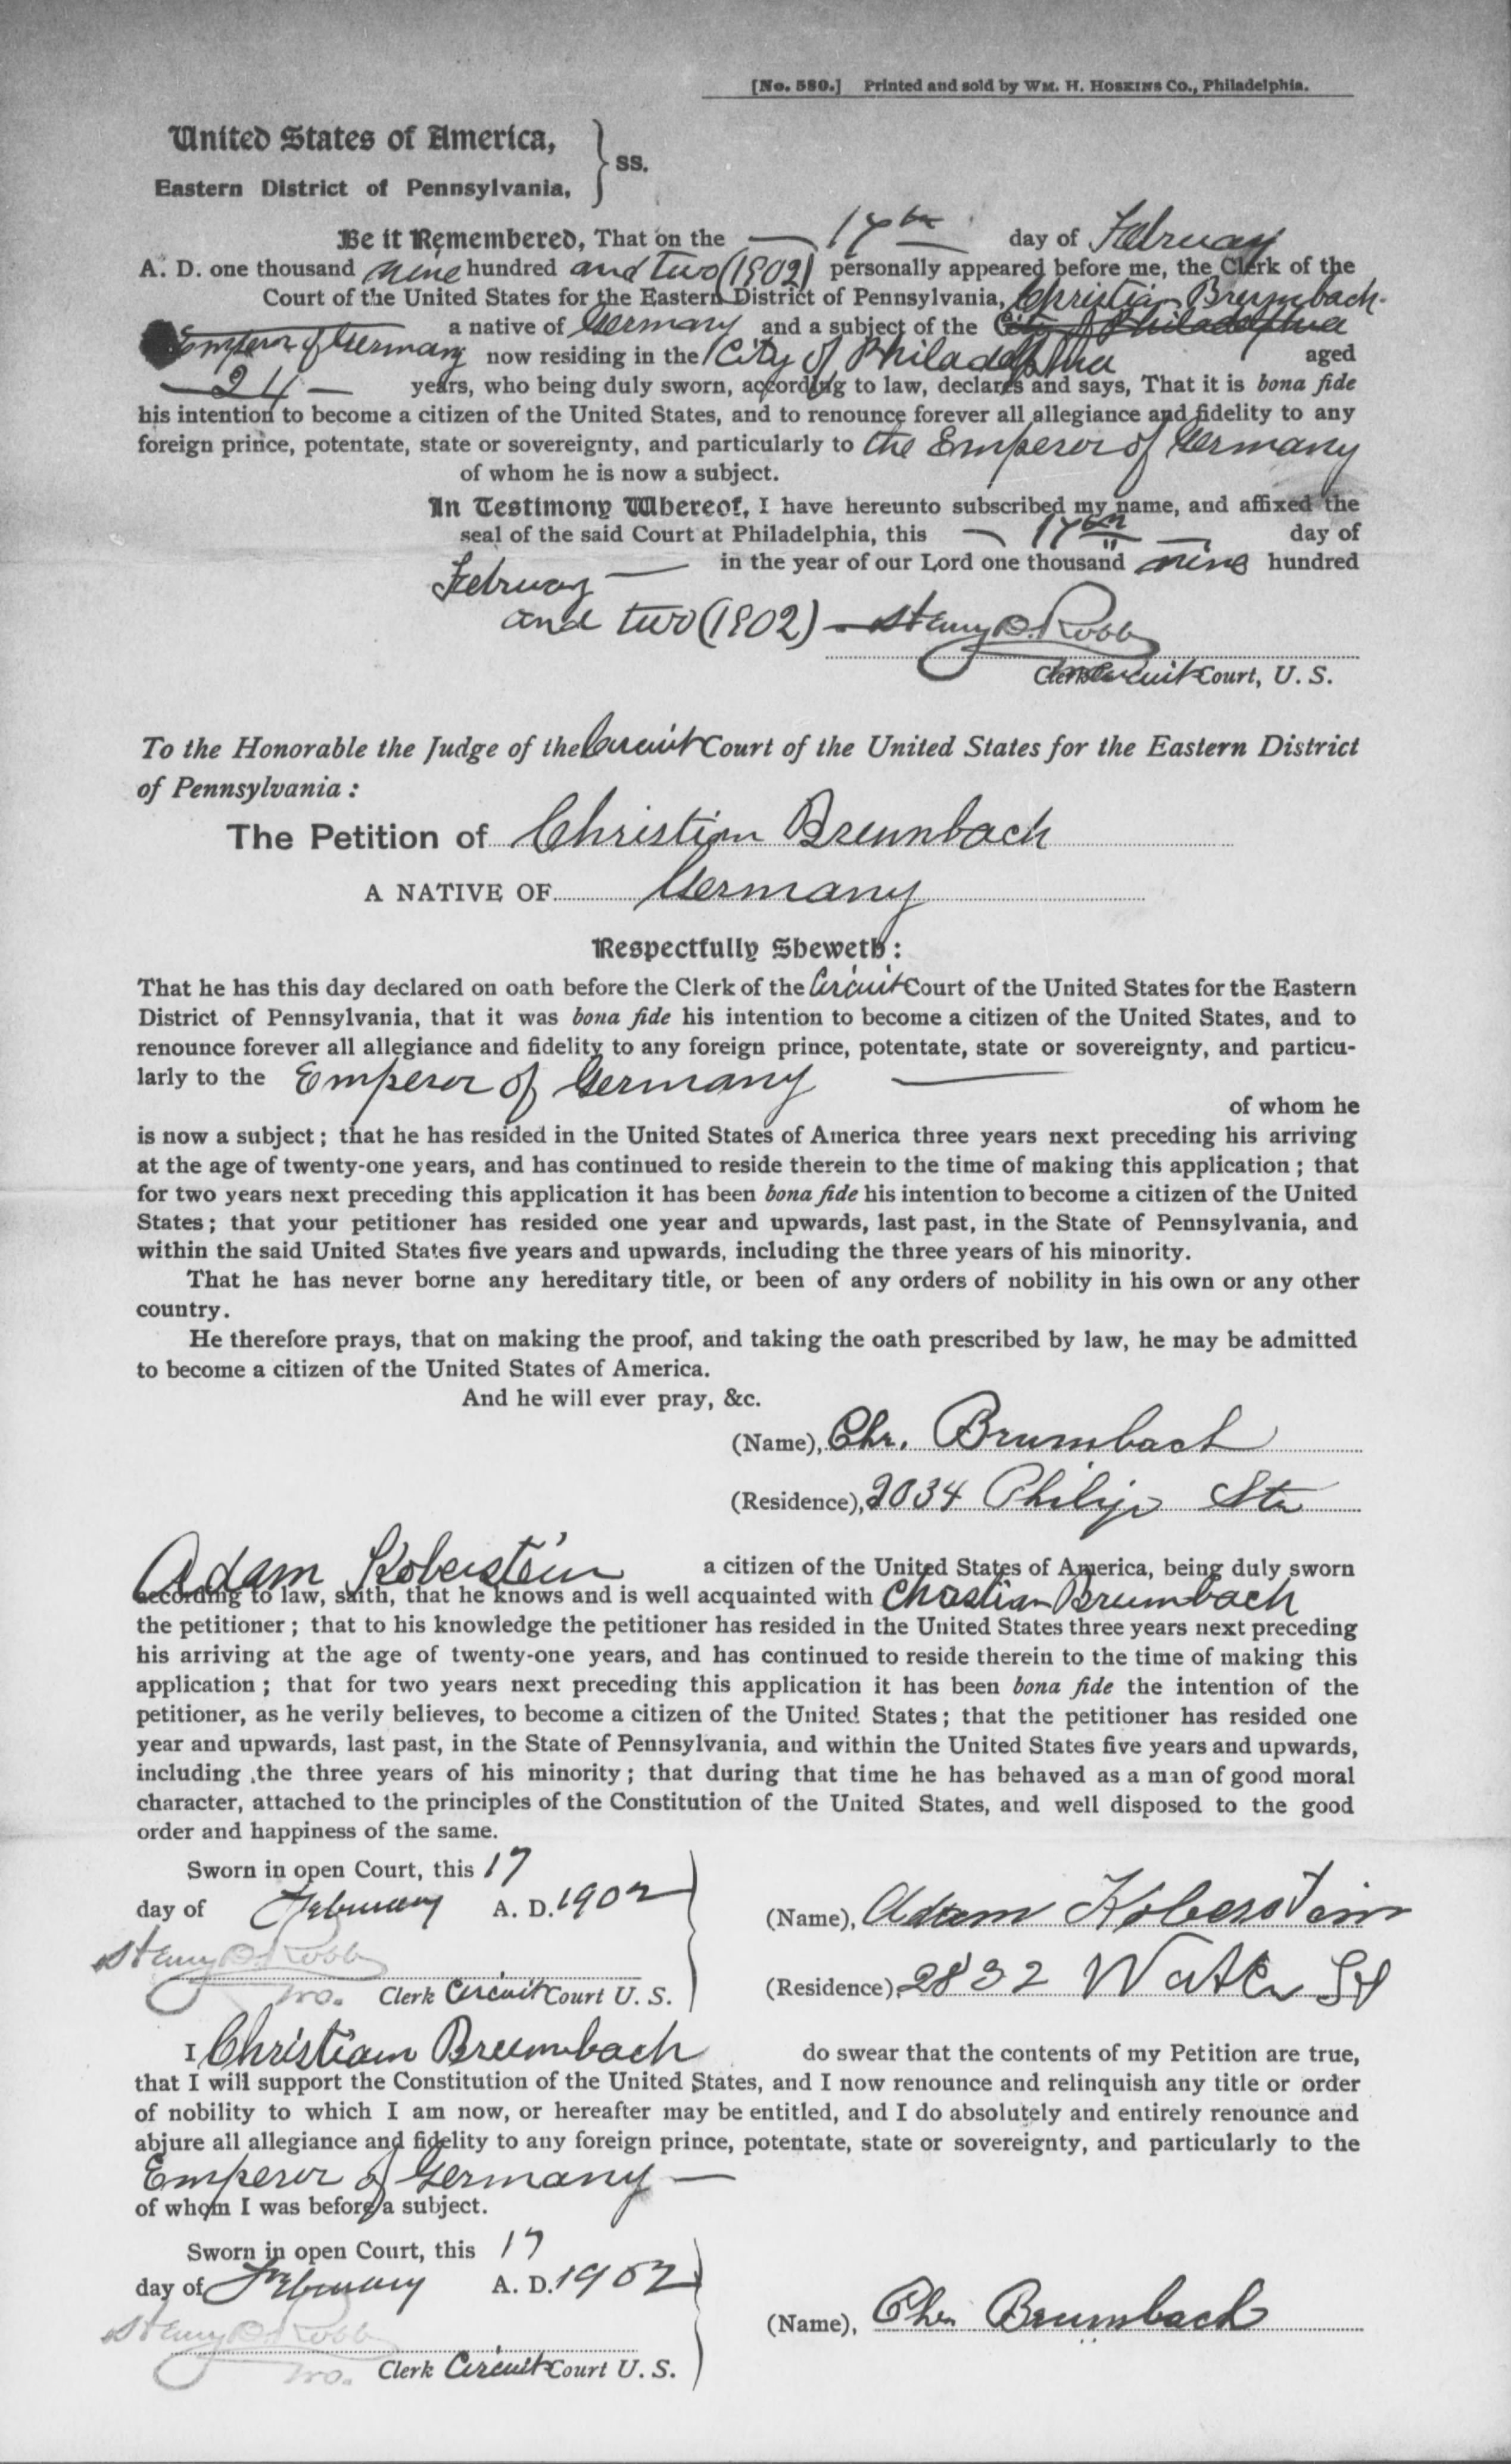 [No. 580.] Printed and sold by WM. H. HOSKINS CO., Philadelphia.
United States of America,
Eastern District of Pennsylvania, } ss.
Be it Remembered, That on the 17th day of February
A. D. one thousand nine hundred and two (1902) personally appeared before me, the Clerk of the
Court of the United States for the Eastern District of Pennsylvania, Christian Brumbach
a native of Germany and a subject of the City of Philadelphia
Emperor of Germany now residing in the City of Philadelphia aged
24 years, who being duly sworn, according to law, declares and says, That it is bona fide
his intention to become a citizen of the United States, and to renounce forever all allegiance and fidelity to any
foreign prince, potentate, state or sovereignty, and particularly to the Emperor of Germany
of whom he is now a subject.
In Testimony Whereof, I have hereunto subscribed my name, and affixed the
seal of the said Court at Philadelphia, this 17th day of
February in the year of our Lord one thousand nine hundred
and two (1902) Henry B. Robb
Clerk Circuit Court, U. S.
To the Honorable the Judge of the Circuit Court of the United States for the Eastern District
of Pennsylvania :
The Petition of Christian Brumbach
A NATIVE OF Germany
Respectfully Sheweth :
That he has this day declared on oath before the Clerk of the Circuit Court of the United States for the Eastern
District of Pennsylvania, that it was bona fide his intention to become a citizen of the United States, and to
renounce forever all allegiance and fidelity to any foreign prince, potentate, state or sovereignty, and particu-
larly to the Emperor of Germany
of whom he
is now a subject ; that he has resided in the United States of America three years next preceding his arriving
at the age of twenty-one years, and has continued to reside therein to the time of making this application ; that
for two years next preceding this application it has been bona fide his intention to become a citizen of the United
States ; that your petitioner has resided one year and upwards, last past, in the State of Pennsylvania, and
within the said United States five years and upwards, including the three years of his minority.
That he has never borne any hereditary title, or been of any orders of nobility in his own or any other
country.
He therefore prays, that on making the proof, and taking the oath prescribed by law, he may be admitted
to become a citizen of the United States of America.
And he will ever pray, &c.
(Name), Chr. Brumbach
(Residence), 2034 Philip Str
Adam Koberstein a citizen of the United States of America, being duly sworn
according to law, saith, that he knows and is well acquainted with Christian Brumbach
the petitioner ; that to his knowledge the petitioner has resided in the United States three years next preceding
his arriving at the age of twenty-one years, and has continued to reside therein to the time of making this
application ; that for two years next preceding this application it has been bona fide the intention of the
petitioner, as he verily believes, to become a citizen of the United States ; that the petitioner has resided one
year and upwards, last past, in the State of Pennsylvania, and within the United States five years and upwards,
including the three years of his minority ; that during that time he has behaved as a man of good moral
character, attached to the principles of the Constitution of the United States, and well disposed to the good
order and happiness of the same.
Sworn in open Court, this 17
day of February A. D. 1902
(Name), Adam Koberstein
Henry B. Robb
pro. Clerk Circuit Court U. S.
(Residence), 2832 Water St
I Christian Brumbach do swear that the contents of my Petition are true,
that I will support the Constitution of the United States, and I now renounce and relinquish any title or order
of nobility to which I am now, or hereafter may be entitled, and I do absolutely and entirely renounce and
abjure all allegiance and fidelity to any foreign prince, potentate, state or sovereignty, and particularly to the
Emperor of Germany
of whom I was before a subject.
Sworn in open Court, this 17
day of February A. D. 1902
(Name), Chr. Brumbach
Henry B. Robb
pro. Clerk Circuit Court U. S.